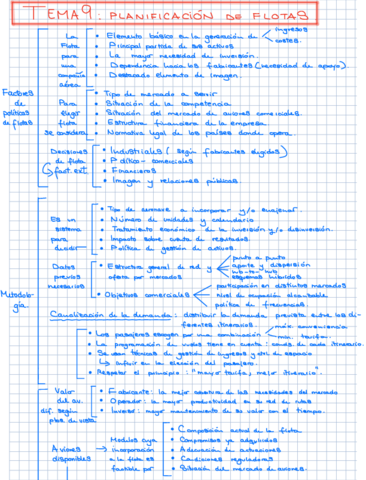 TEMA 9: PLANIFICACIÓN DE FLOTAS
Factores de políticas de flotas
La Flota para una compañía aérea
• Elemento básico en la generación de ingresos costes.
• Principal partida de sus activos
• La mayor necesidad de inversión.
• Dependencia hacia los fabricantes (necesidad de apoyo).
• Destacado elemento de imagen.
Para elegir flota se considera
• Tipo de mercado a servir
• Situación de la competencia
• Situación del mercado de aviones comerciales.
• Estructura financiera de la empresa.
• Normativa legal de los países donde opera.
Decisiones de flota
↳ fact. ext.
• Industriales (según fabricantes elegidos)
• Político-comerciales
• Financieros
• Imagen y relaciones públicas.
Metodología
Es un sistema para decidir
• Tipo de aeronave a incorporar y/o enajenar.
• Número de unidades y calendario
• Tratamiento económico de la inversión y/o desinversión.
• Impacto sobre cuenta de resultados
• Política de gestión de activos.
Datos previos necesarios
• Estructura general de red y oferta por mercados
punto a punto
aporte y dispersión
hub-to-hub
esquemas híbridos
• Objetivos comerciales
participación en distintos mercados
Nivel de ocupación alcanzable
política de frecuencias
Canalización de la demanda: distribuir la demanda prevista entre los diferentes itinerarios
• Los pasajeros escogen por una combinación
máx. conveniencia
mín. tarifa.
• La programación de vuelos tiene en cuenta: cuotas de cada itinerario.
• Se usan técnicas de gestión de ingresos y gest. de espacio
↳ influir en la elección del pasajero
• Respetar el principio: "mayor tarifa, mejor itinerario".
Valor del av. dif. según ptos. de vista
• Fabricante: la mejor objetiva de las necesidades del mercado
• Operador: la mayor productividad en su red de rutas
• Inversor: mayor mantenimiento de su valor con el tiempo.
Aviones disponibles
Modelos cuya incorporación a la flota es factible por
• Composición actual de la flota
• Compromisos ya adquiridos
• Adecuación de actuaciones
• Condiciones reguladoras
• Situación del mercado de aviones.